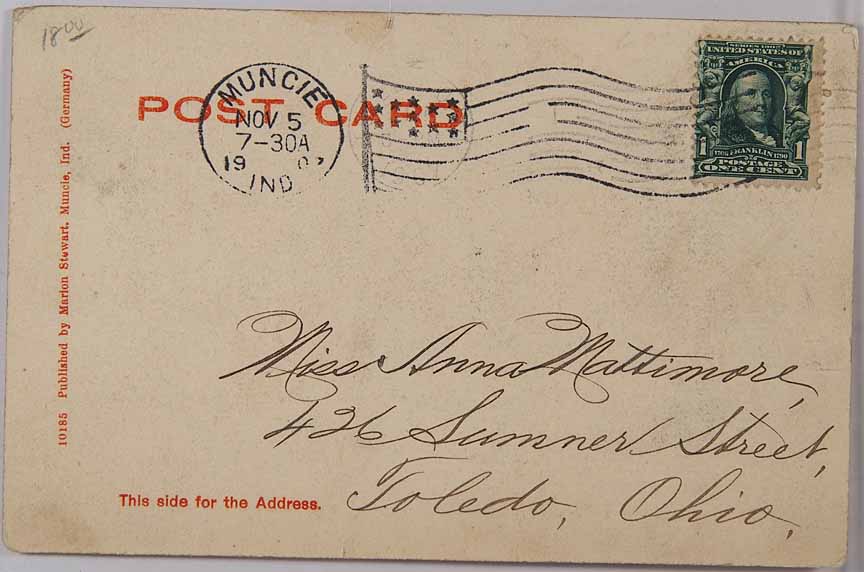 18 00
POST CARD
MUNCIE
NOV 5
7-30A
19 07
IND
SERIES 1902
UNITED STATES OF
AMERICA
1 1706 FRANKLIN 1790 1
POSTAGE
ONE CENT
10185 Published by Marion Stewart, Muncie, Ind. (Germany)
Miss Anna Mattimore,
426 Sumner Street,
Toledo, Ohio,
This side for the Address.